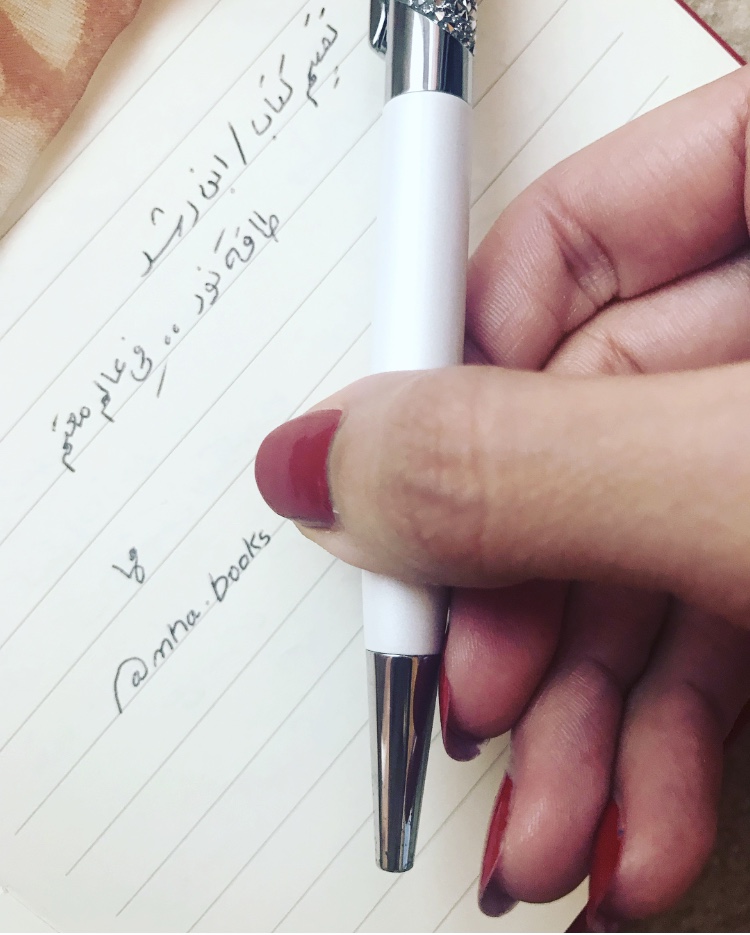 تقييم كتاب / ابن رشد
طاقة نور .. في عالم معتم
مها
@mha.books